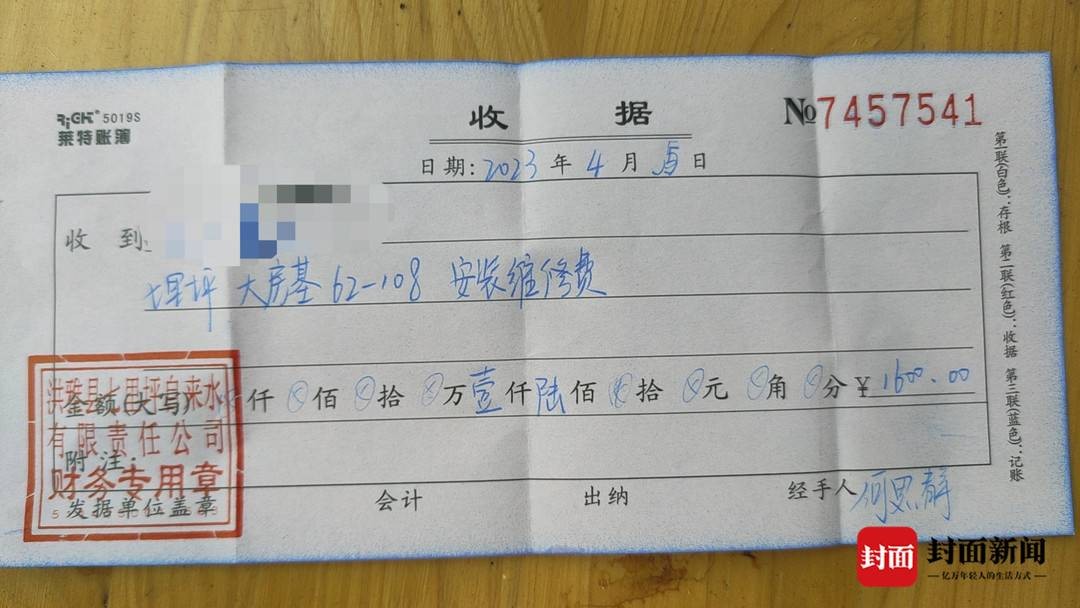 RiGHt® 5019S
莱特账簿
收 据
№7457541
日期:2023年4月5日
收 到
埋坪 大房基62-108 安装维修费
金额(大写) ⊗仟⊗佰⊗拾⊗万壹仟陆佰⊗拾⊗元⊗角⊗分 ¥1600.00
附注:
发据单位盖章 会计 出纳 经手人 何思静
洪雅县七里坪自来水
有限责任公司
财务专用章
第一联(白色):存根 第二联(红色):收据 第三联(蓝色):记账
封面 封面新闻
亿万年轻人的生活方式